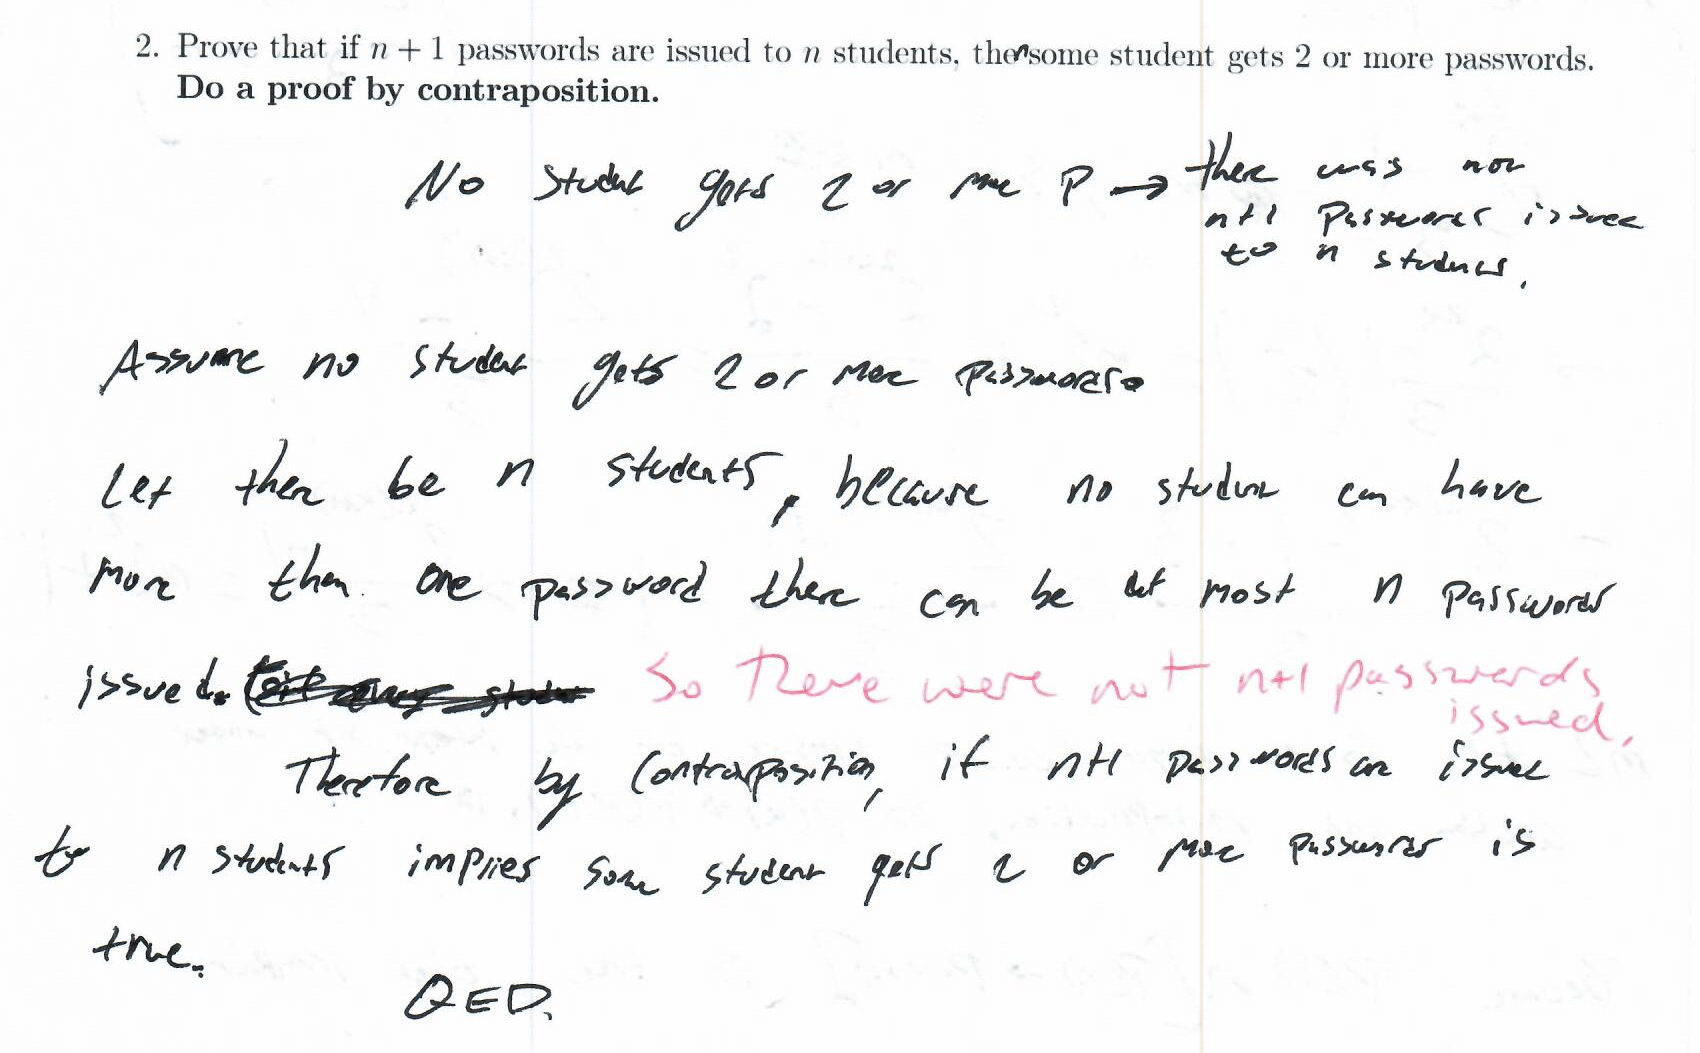 2. Prove that if n + 1 passwords are issued to n students, then some student gets 2 or more passwords.
Do a proof by contraposition.
No student gets 2 or more P → there was not
n+1 passwords issued
to n students.
Assume no student gets 2 or more passwords.
Let there be n students, because no student can have
more then one password there can be at most n passwords
issued. So there were not n+1 passwords
issued.
Therefore by contraposition, if n+1 passwords are issued
to n students implies some student gets 2 or more passwords is
true.
QED.